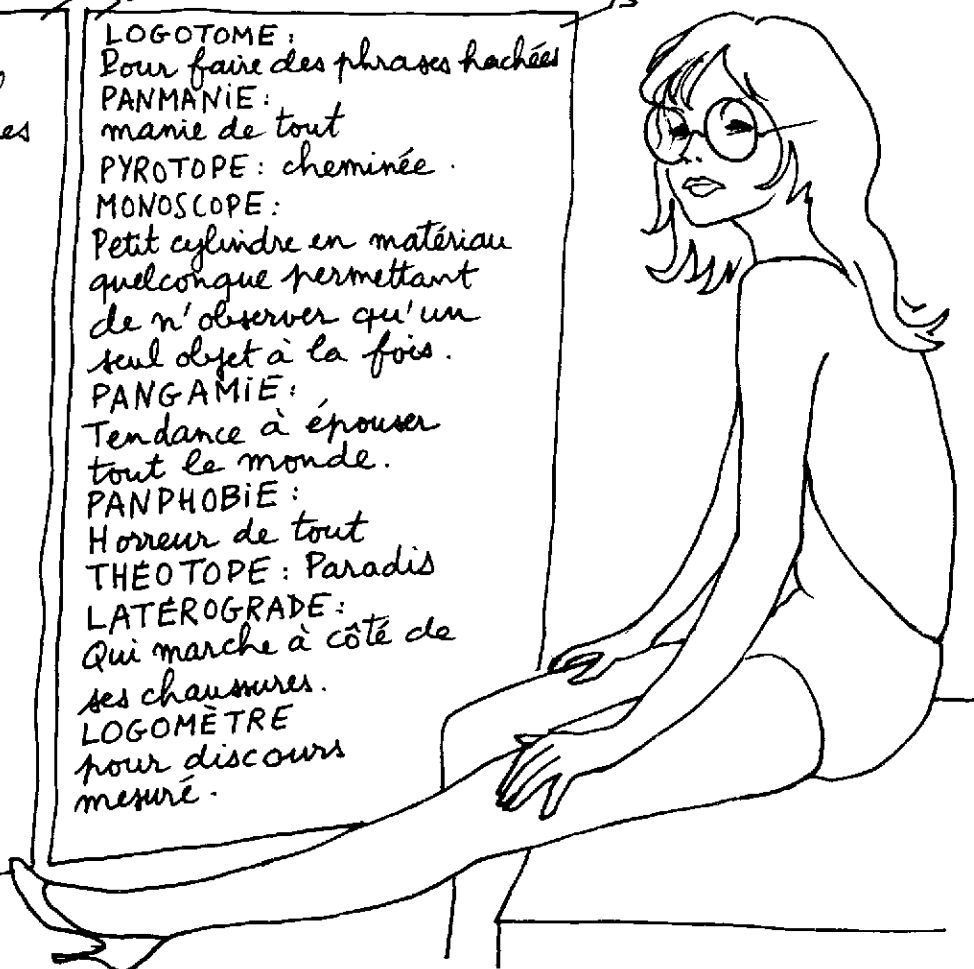 es
LOGOTOME :
Pour faire des phrases hachées
PANMANiE :
manie de tout
PYROTOPE : cheminée .
MONOSCOPE :
Petit cylindre en matériau
quelconque permettant
de n'observer qu'un
seul objet à la fois .
PANGAMiE :
Tendance à épouser
tout le monde .
PANPHOBiE :
Horreur de tout
THÉOTOPE : Paradis
LATÉROGRADE :
Qui marche à côté de
ses chaussures .
LOGOMÈTRE
pour discours
mesuré .